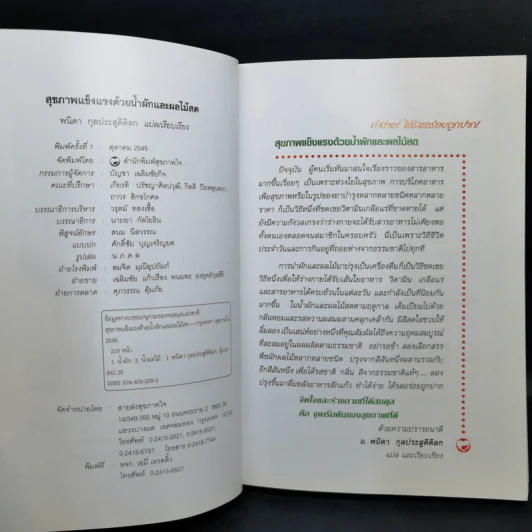 สุขภาพแข็งแรงด้วยน้ำผักและผลไม้สด
พนิดา กุลประสูติดิลก แปล/เรียบเรียง
พิมพ์ครั้งที่ 1 : ตุลาคม 2545
จัดพิมพ์โดย : สำนักพิมพ์สุขภาพใจ
กรรมการผู้จัดการ : บัญชา เฉลิมชัยกิจ
คณะที่ปรึกษา : เกียรติ ปรัชญาศิลปวุฒิ, กิตติ
ถาวร สิกขโกศล
บรรณาธิการบริหาร : วรุตม์ ทองเชื้อ
บรรณาธิการ : นายธา กัลโยธิน
พิสูจน์อักษร : สนม นิลวรรณ
แบบปก : ศักดิ์ชัย บุญเจริญยศ
รูปเล่ม : น ภ ด ล
ฝ่ายโรงพิมพ์ : สมจิต มุณีอุปถัมภ์
ฝ่ายขาย : เฉลิมชัย แก้วเรือง, พนมพร
ฝ่ายการตลาด : ศุภวรรณ คุ้มภัย
ข้อมูลทางบรรณานุกรมของหอสมุดแห่งชาติ
สุขภาพแข็งแรงด้วยน้ำผักและผลไม้สด.--กรุงเทพฯ : สุขภาพใจ
216 หน้า
1. น้ำผัก 2. น้ำผลไม้ 1 พนิดา กุลประสูติดิลก
641.35
ISBN 974-409-309-2
จัดจำหน่ายโดย : สายส่งสุขภาพใจ
14/349-350 หมู่ 10 ถนนพระราม 2 ซอย 38
แขวงบางมด เขตจอมทอง กรุงเทพฯ
โทรศัพท์ 0-2415-2621, 0-2415-6507,
0-2415-6797 โทรสาร 0-2416-7744
พิมพ์ที่ : หจก. เอมี่ เทรดดิ้ง
โทรศัพท์ 0-2415-6507
ทำง่าย! ได้รสอร่อยถูกปาก!
สุขภาพแข็งแรงด้วยน้ำผักและผลไม้สด
ปัจจุบัน ผู้คนเริ่มหันมาสนใจเรื่องราวของสารอาหาร
มากขึ้นเรื่อยๆ เป็นเพราะห่วงใยในสุขภาพ การบริโภคอาหาร
เพื่อสุขภาพหรือในรูปของยาบำรุงหลากหลายชนิดหลากหลาย
ราคา ก็เป็นวิธีหนึ่งที่ชดเชยวิตามินเกลือแร่ที่ขาดหายได้ แต่
ยังมีความกังวลเกรงว่าร่างกายจะได้รับสารอาหารไม่เพียงพอ
ทั้งตนเองตลอดจนสมาชิกในครอบครัว นี่เป็นเพราะวิถีชีวิต
ประจำวันและการกินอยู่ที่ถอยห่างจากธรรมชาติไปทุกที
การนำผักและผลไม้มาปรุงเป็นเครื่องดื่มก็เป็นวิธีชดเชย
วิธีหนึ่งเพื่อร่างกายได้รับเส้นใยอาหาร วิตามิน เกลือแร่
และสารอาหารได้ครบถ้วนในแต่ละวัน และกำลังเป็นที่นิยมกัน
มากขึ้น ในน้ำผักและผลไม้สดตามฤดูกาล เต็มเปี่ยมไปด้วย
กลิ่นหอมและรสหวานผสมผสานคลุกเคล้ากัน มีสีสดใสชวนให้
ลิ้มลอง เป็นเสน่ห์อย่างหนึ่งที่คุณสัมผัสได้ถึงความอุดมสมบูรณ์
ที่สะสมอยู่ในผลผลิตตามธรรมชาติ อย่ารอช้า ลองเลือกสรร
พืชผักผลไม้หลากหลายชนิด ปรุงจากสีสันหนึ่งผสานรวมกับ
อีกสีสันหนึ่ง เพื่อได้รสชาติ กลิ่น สีจากธรรมชาติแท้ๆ... ลอง
ปรุงขึ้นมาดื่มหลังอาหารสักแก้ว ทำได้ง่าย ได้รสอร่อยถูกปาก
จิตใจและร่างกายที่ได้สมดุล
คือ จุดเริ่มต้นของสุขภาพที่ดี
ด้วยความปรารถนาดี
อ. พนิดา กุลประสูติดิลก
แปล และเรียบเรียง